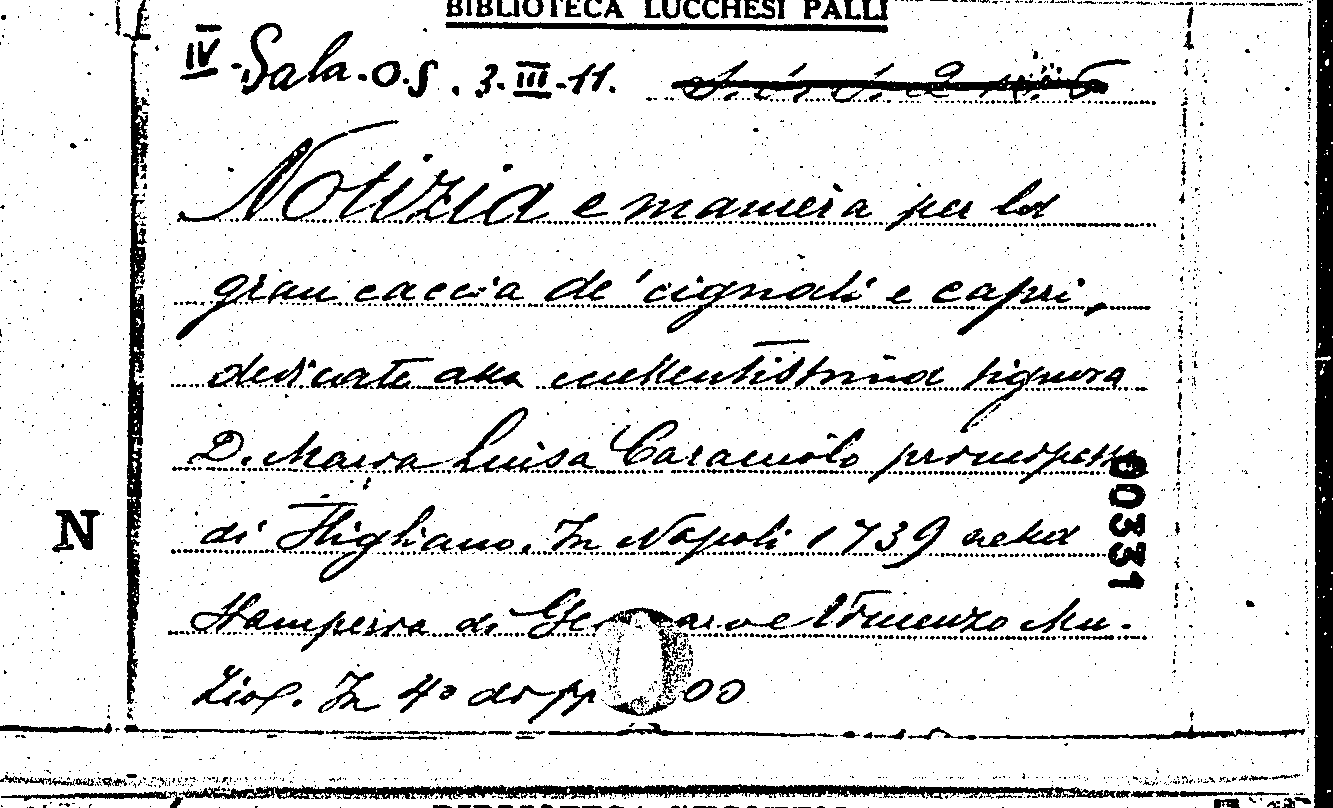 BIBLIOTECA LUCCHESI PALLI
IV - Sala - O.S. 3. III - 11.
Notizia e maniera per la
gran caccia de' cignali e capri,
dedicata alla eccellentissima signora
D. Maria Luisa Caracciolo principessa
di Stigliano. In Napoli 1739 nella
stamperia di Ge aro e Vincenzo Mu-
zio. In 4° di pp. 00
N
00331